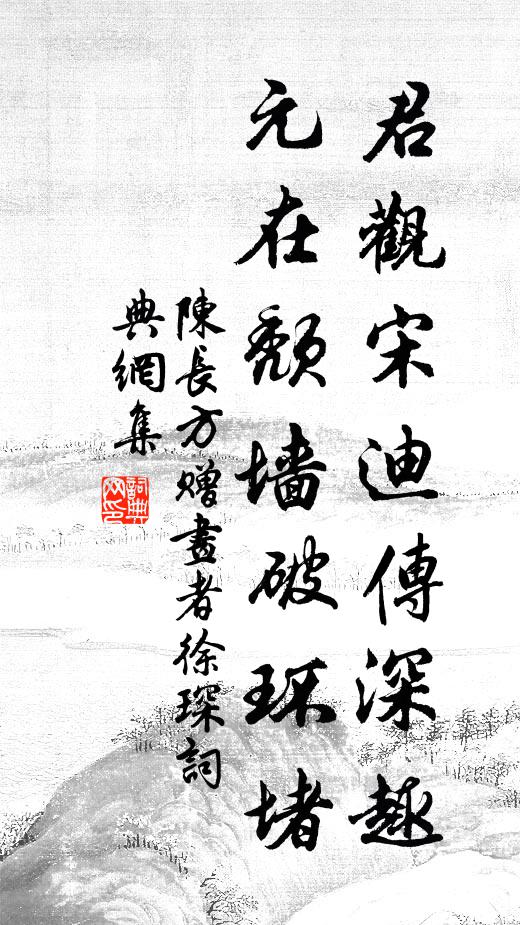 君觀宋迪傳深趣
元在頹墙破环堵
陳長方贈畫者徐琛詞
典網集
詞典网印